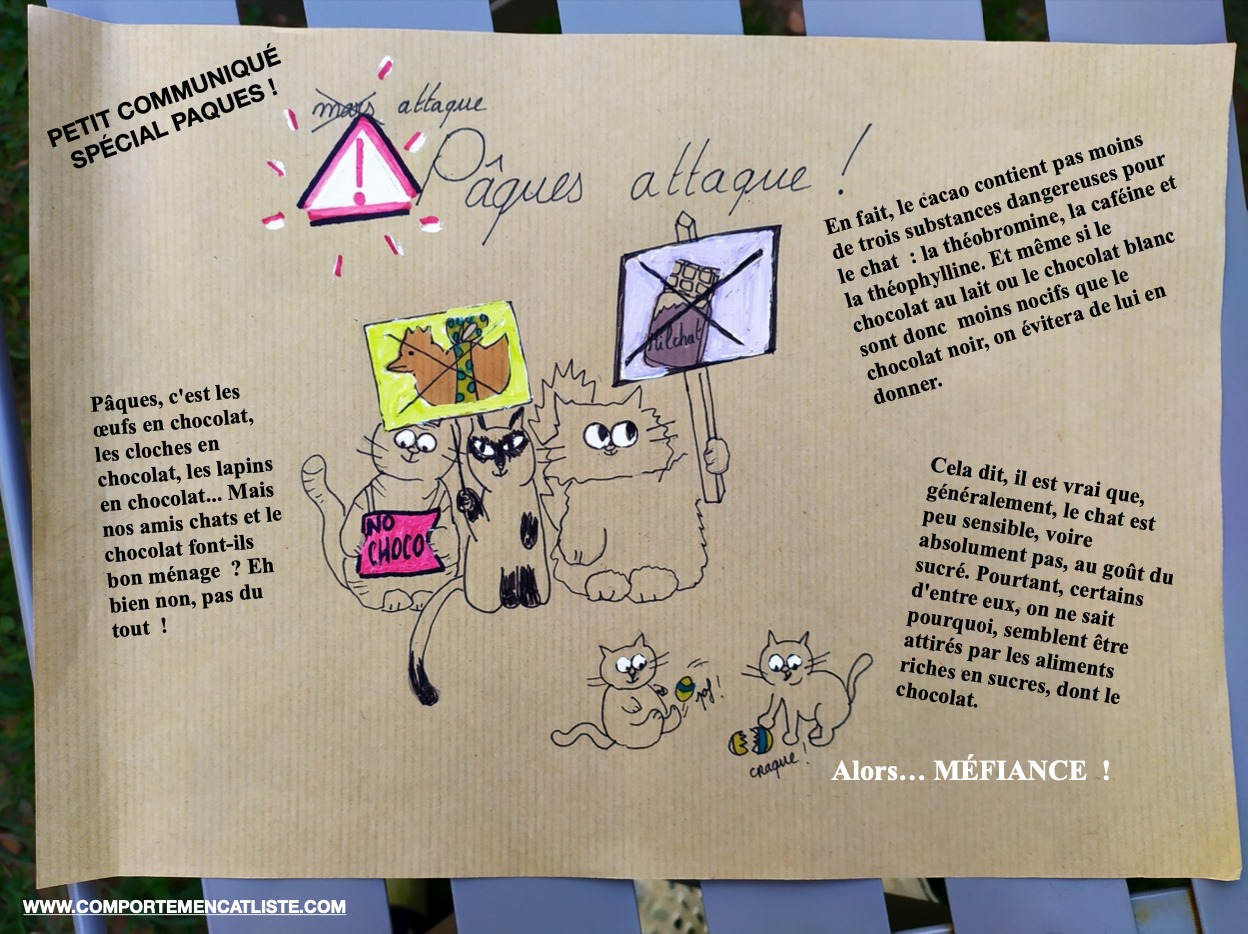 PETIT COMMUNIQUÉ
SPÉCIAL PAQUES !
mars attaque
Pâques attaque !
En fait, le cacao contient pas moins
de trois substances dangereuses pour
le chat : la théobromine, la caféine et
la théophylline. Et même si le
chocolat au lait ou le chocolat blanc
sont donc moins nocifs que le
chocolat noir, on évitera de lui en
donner.
Milchat
Pâques, c'est les
œufs en chocolat,
les cloches en
chocolat, les lapins
en chocolat... Mais
nos amis chats et le
chocolat font-ils
bon ménage ? Eh
bien non, pas du
tout !
NO
CHOCO
Cela dit, il est vrai que,
généralement, le chat est
peu sensible, voire
absolument pas, au goût du
sucré. Pourtant, certains
d'entre eux, on ne sait
pourquoi, semblent être
attirés par les aliments
riches en sucres, dont le
chocolat.
craque !
Alors… MÉFIANCE !
WWW.COMPORTEMENCATLISTE.COM